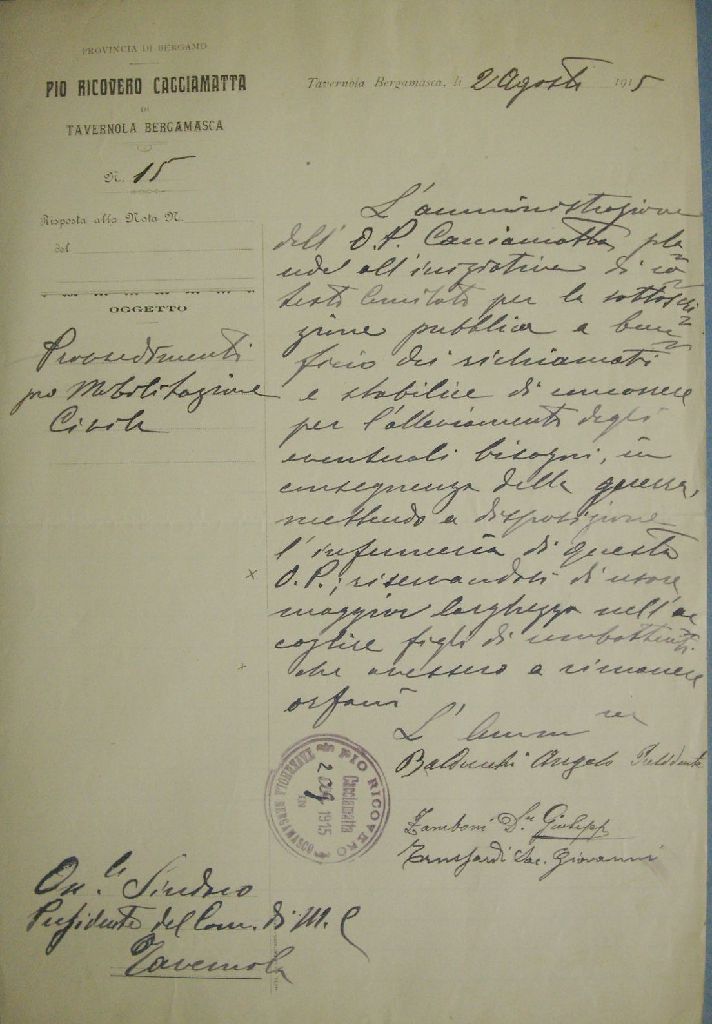 PROVINCIA DI BERGAMO
PIO RICOVERO CACCIAMATTA
DI
TAVERNOLA BERGAMASCA
N. 15
Risposta alla Nota N.
del
OGGETTO
Provvedimenti
pro Mobilitazione
Civile
Tavernola Bergamasca, li 2 Agosto 1915
L'amministrazione
dell'O.P. Cacciamatta, plau
de all'iniziativa di co
testo Comitato per la sottoscri
zione pubblica a bene
ficio dei richiamati
e stabilisce di concorrere
per l'alleviamento degli
eventuali bisogni, in
conseguenza della guerra,
mettendo a disposizione
l'infermeria di questa
O.P.; riservandosi di usare
maggior larghezza nell'ac
cogliere figli di combattenti
che avessero a rimanere
orfani
L'Amm
Angelo Presidente
Zamboni Dr. Giuseppe
Sac. Giovanni
PIO RICOVERO
Cacciamatta
2 Ag 1915
IN
TAVERNOLA BERGAMASCA
On.le Sindaco
Presidente del Com. di M. C
Tavernola